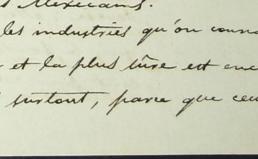 Mexicans.
les industries qu'on
et la plus sûre est
surtout, parce que